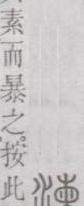 素而暴之按此
湅